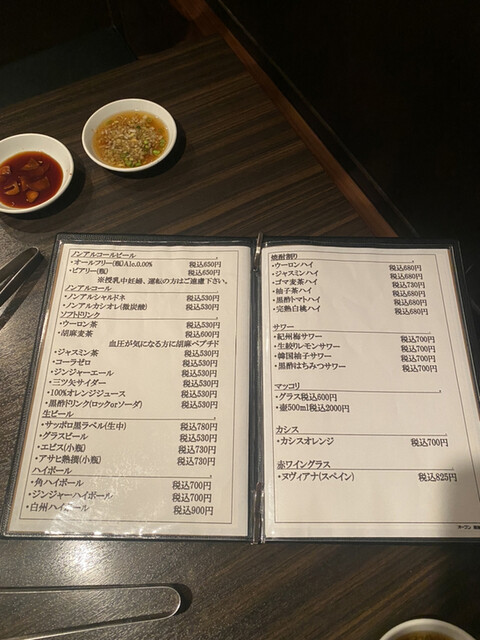 ノンアルコールビール
・オールフリー(瓶)Alc.0.00% 税込650円
・ビアリー(瓶) 税込650円
※授乳中妊婦、運転の方はご遠慮下さい。
ノンアルコール
・ノンアルシャルドネ 税込530円
・ノンアルカシオレ(微炭酸) 税込530円
ソフトドリンク
・ウーロン茶 税込530円
・胡麻麦茶 税込600円
血圧が気になる方に胡麻ペプチド
・ジャスミン茶 税込530円
・コーラゼロ 税込530円
・ジンジャーエール 税込530円
・三ツ矢サイダー 税込530円
・100%オレンジジュース 税込530円
・黒酢ドリンク(ロックorソーダ) 税込530円
生ビール
・サッポロ黒ラベル(生中) 税込780円
・グラスビール 税込530円
・エビス(小瓶) 税込730円
・アサヒ熟撰(小瓶) 税込730円
ハイボール
・角ハイボール 税込700円
・ジンジャーハイボール 税込700円
・白州ハイボール 税込900円
焼酎割り
・ウーロンハイ 税込680円
・ジャスミンハイ 税込680円
・ゴマ麦茶ハイ 税込730円
・柚子茶ハイ 税込680円
・黒酢トマトハイ 税込680円
・完熟白桃ハイ 税込680円
サワー
・紀州梅サワー 税込700円
・生絞りレモンサワー 税込700円
・韓国柚子サワー 税込700円
・黒酢はちみつサワー 税込700円
マッコリ
・グラス税込600円
・壺500ml税込2000円
カシス
・カシスオレンジ 税込700円
赤ワイングラス
・ヌヴィアナ(スペイン) 税込825円